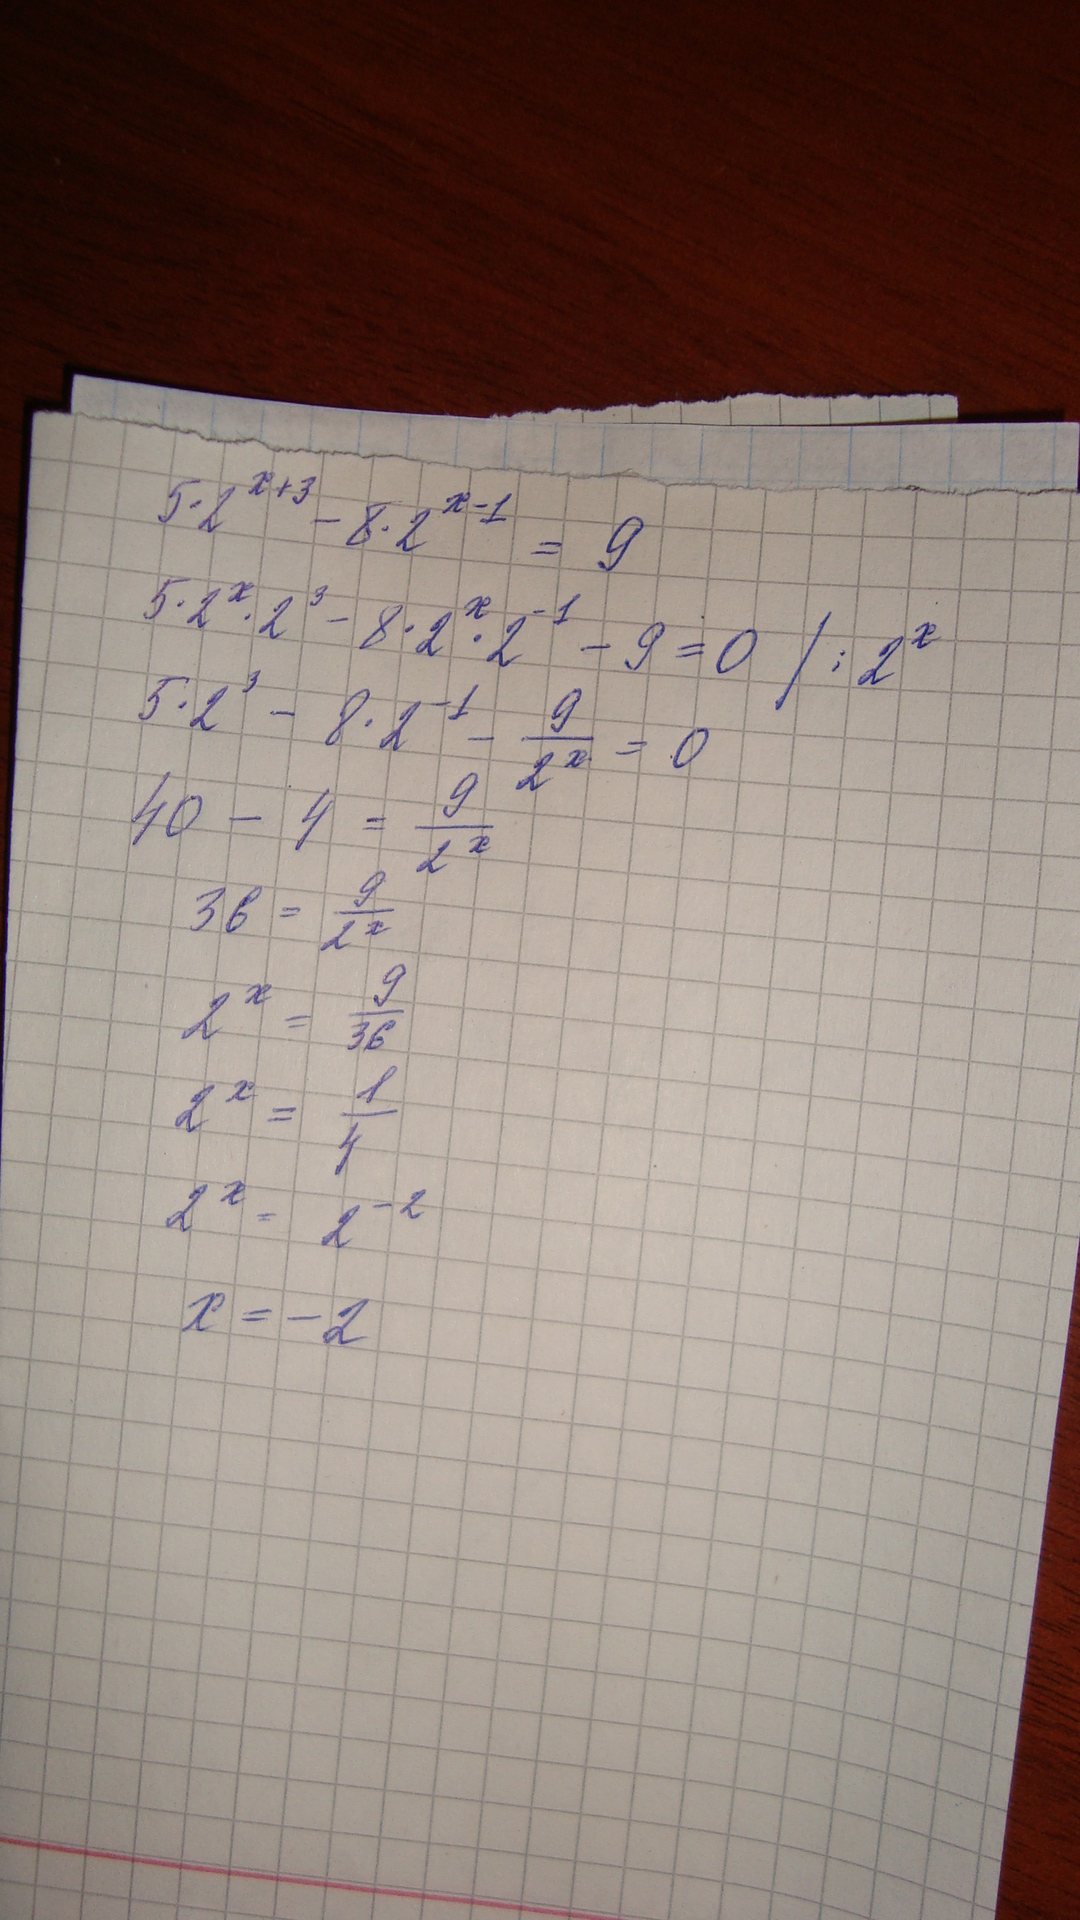 5·2^{x+3} - 8·2^{x-1} = 9
5·2^x·2^3 - 8·2^x·2^{-1} - 9 = 0 / : 2^x
5·2^3 - 8·2^{-1} - \frac{9}{2^x} = 0
40 - 4 = \frac{9}{2^x}
36 = \frac{9}{2^x}
2^x = \frac{9}{36}
2^x = \frac{1}{4}
2^x = 2^{-2}
x = -2